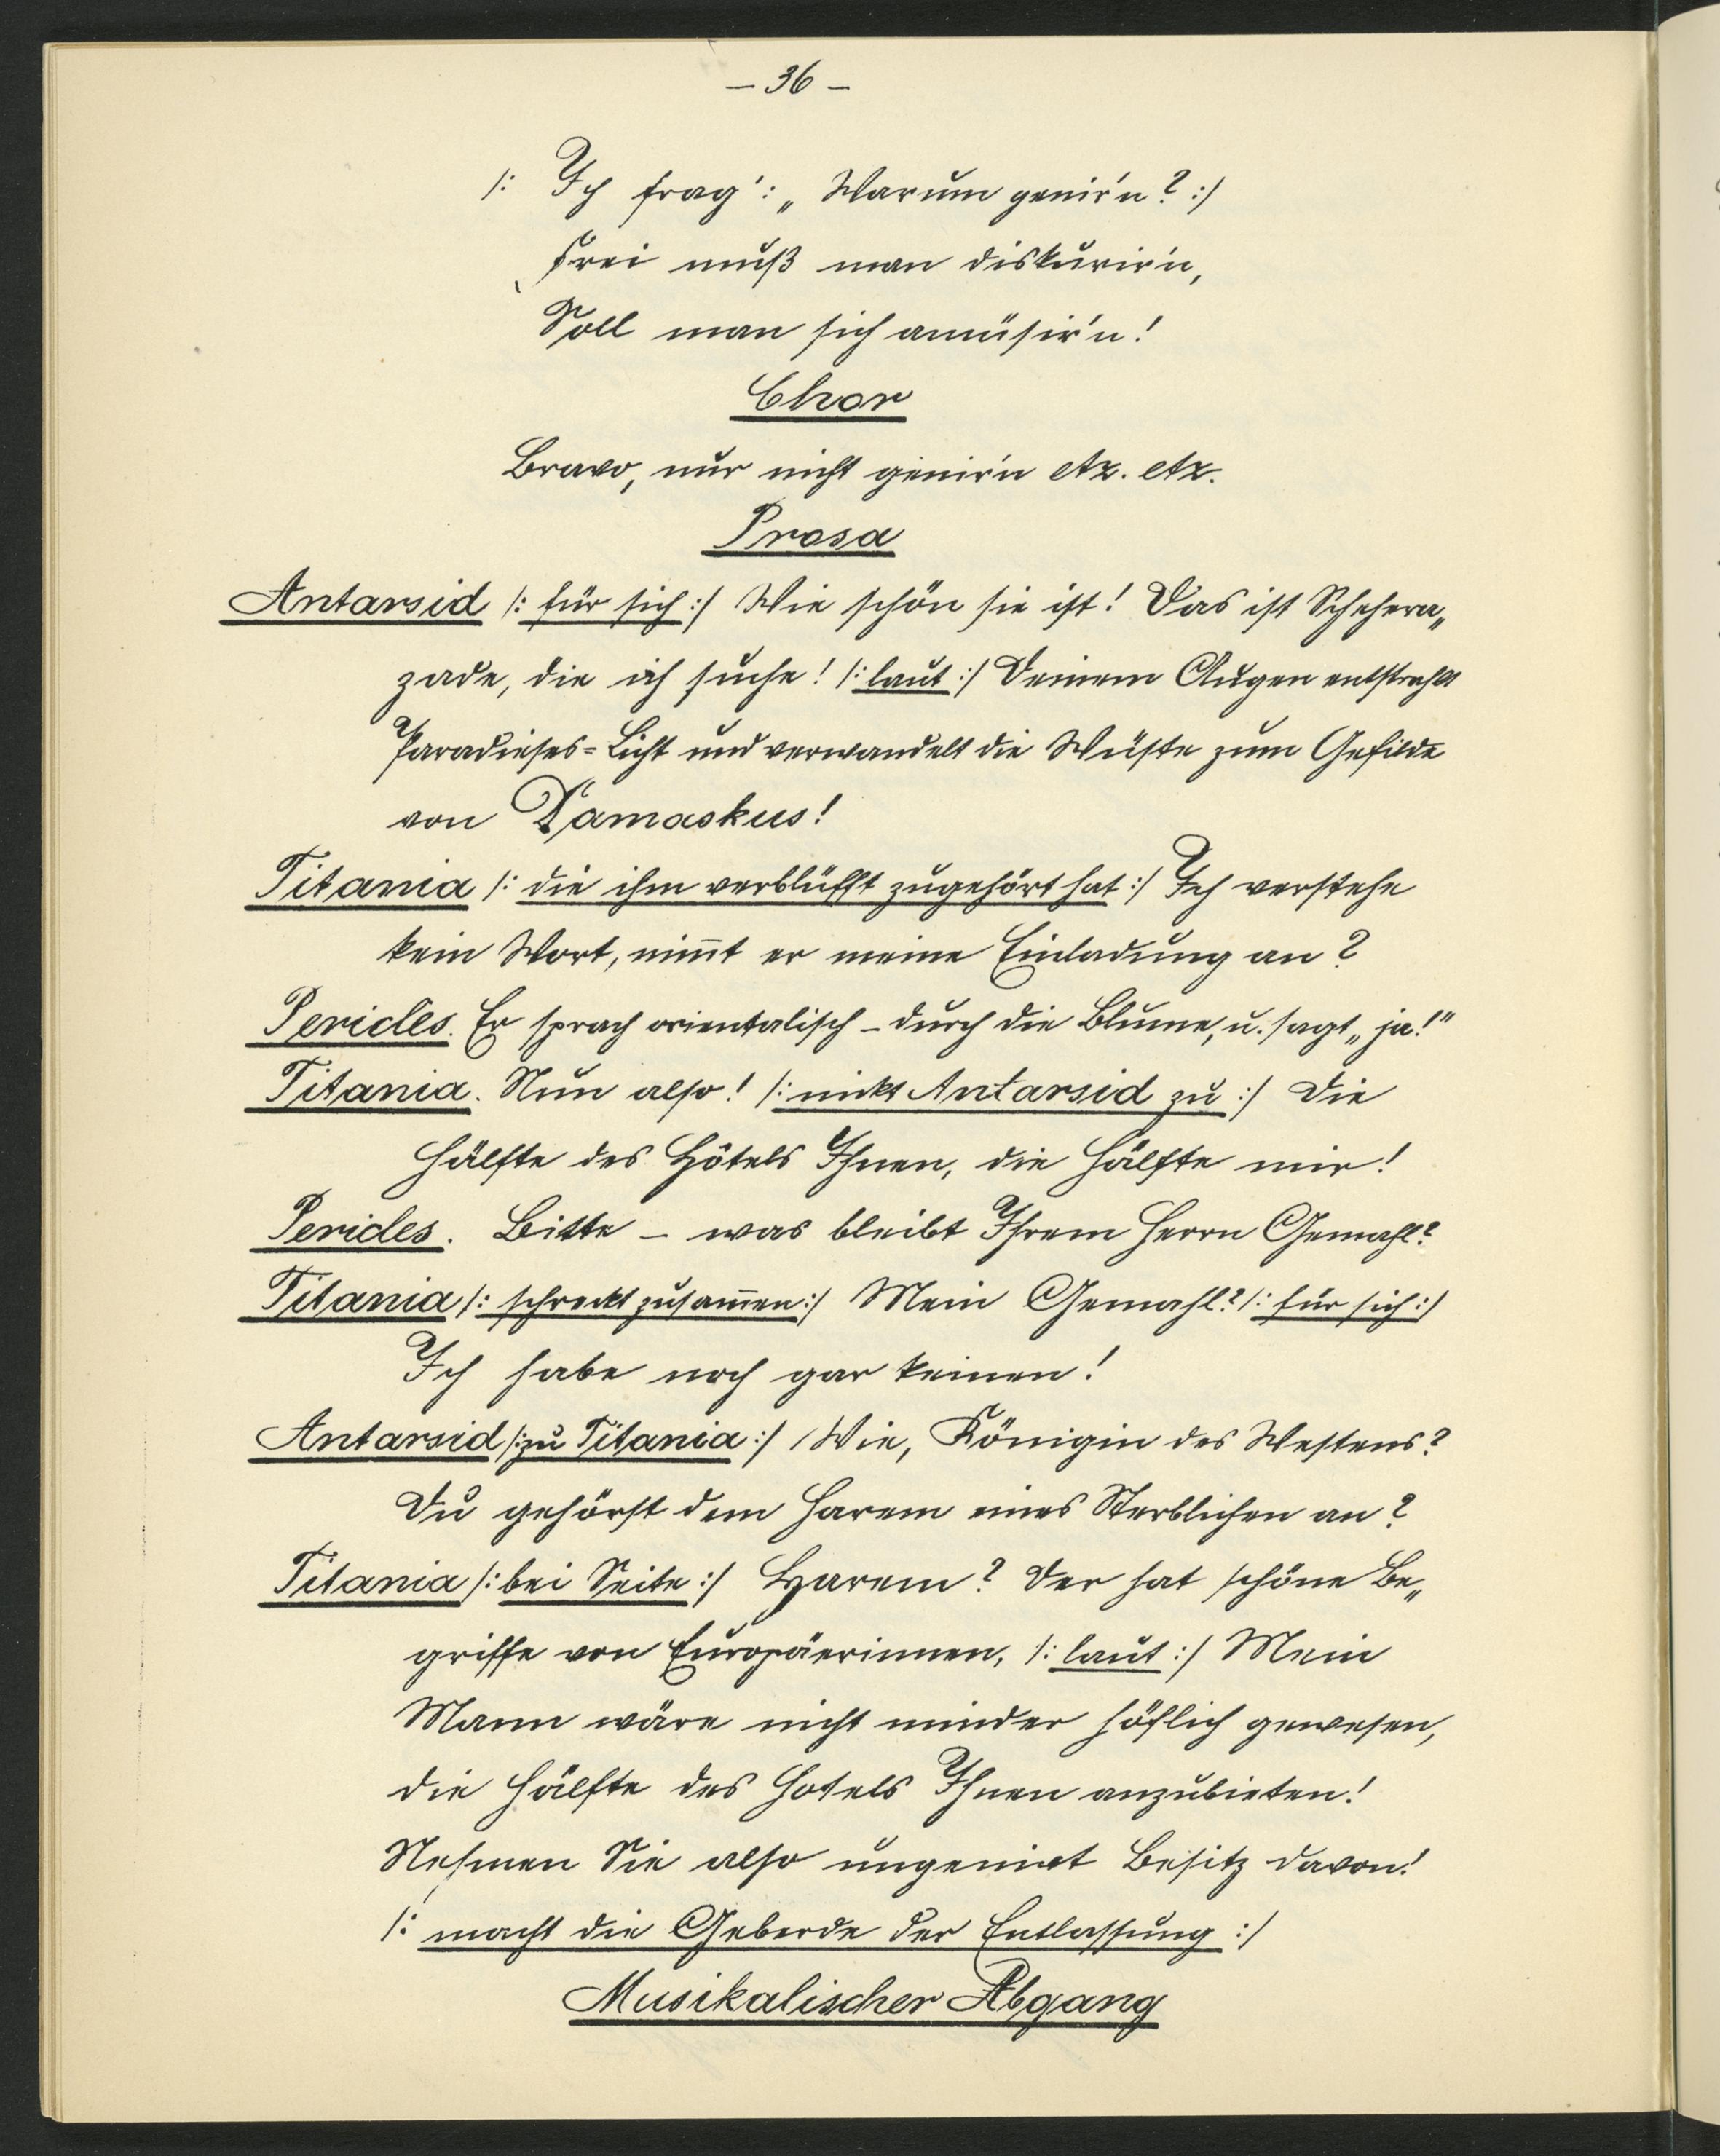 – 36 –
/: Ich frag': „Warum genir'n? :/
Frei muß man diskurir'n,
Soll man sich amüsir'n!
Chor
Bravo, nur nicht genir'n etz. etz.
Prosa
Antarsid /: für sich :/ Wie schön sie ist! Das ist Schehera„
zade, die ich suche! /: laut :/ Deinem Augen entstrahlt
Paradieses=Licht und verwandelt die Wüste zum Gefilde
von Damaskus!
Titania /: die ihm verblüfft zugehört hat :/ Ich verstehe
kein Wort, nim̄t er meine Einladung an?
Pericles. Er sprach orientalisch – durch die Blume, u. sagt „ja!"
Titania. Nun also! /: nickt Antarsid zu :/ Die
Hälfte des Hôtels Ihnen, die Hälfte mir!
Pericles. Bitte – was bleibt Ihrem Herrn Gemahl?
Titania /: schreckt zusam̄en :/ Mein Gemahl? /: für sich :/
Ich habe noch gar keinen!
Antarsid /: zu Titania :/ Wie, Königin des Westens?
Du gehörst dem Harem eines Sterblichen an?
Titania /: bei Seite :/ Harem? Der hat schöne Be„
griffe von Europäerinnen, /: laut :/ Mein
Mann wäre nicht minder höflich gewesen,
die Hälfte des Hotels Ihnen anzubieten!
Nehmen Sie also ungenirt Besitz davon!
/: macht die Geberde der Entlassung :/
Musikalischer Abgang